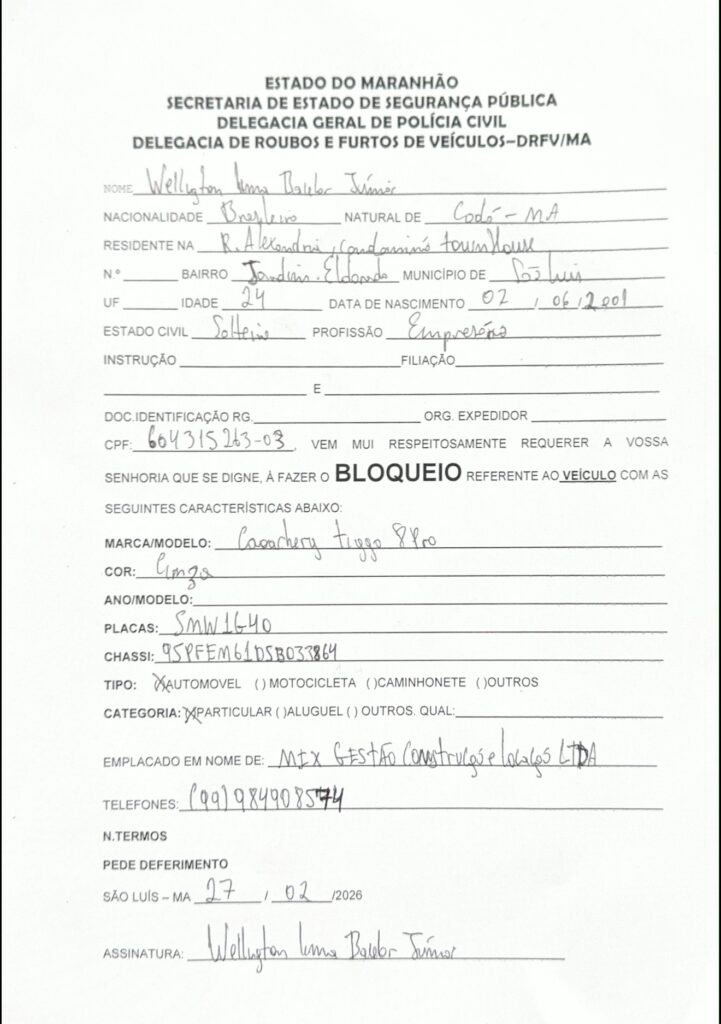 ESTADO DO MARANHÃO
SECRETARIA DE ESTADO DE SEGURANÇA PÚBLICA
DELEGACIA GERAL DE POLÍCIA CIVIL
DELEGACIA DE ROUBOS E FURTOS DE VEÍCULOS–DRFV/MA
NOME Wellington Lima Júnior
NACIONALIDADE Brasileiro NATURAL DE Codó - MA
RESIDENTE NA R. Alexandria, Condomínio townHouse
N.º BAIRRO Jardim Eldorado MUNICÍPIO DE São Luis
UF IDADE 24 DATA DE NASCIMENTO 02 / 06 / 2001
ESTADO CIVIL Solteiro PROFISSÃO Empresário
INSTRUÇÃO FILIAÇÃO
E
DOC.IDENTIFICAÇÃO RG. ORG. EXPEDIDOR
CPF: 604315263-03, VEM MUI RESPEITOSAMENTE REQUERER A VOSSA
SENHORIA QUE SE DIGNE, À FAZER O BLOQUEIO REFERENTE AO VEÍCULO COM AS
SEGUINTES CARACTERÍSTICAS ABAIXO:
MARCA/MODELO: Caoachery tiggo 8 Pro
COR: Cinza
ANO/MODELO:
PLACAS: SMW1G40
CHASSI: 95PFEM61DSB033864
TIPO: (X)AUTOMOVEL ( ) MOTOCICLETA ( )CAMINHONETE ( )OUTROS
CATEGORIA: (X)PARTICULAR ( )ALUGUEL ( ) OUTROS. QUAL:
EMPLACADO EM NOME DE: MIX GESTÃO Construções e locações LTDA
TELEFONES: (99) 984908574
N.TERMOS
PEDE DEFERIMENTO
SÃO LUÍS – MA 27 / 02 /2026
ASSINATURA: Wellington Lima Júnior